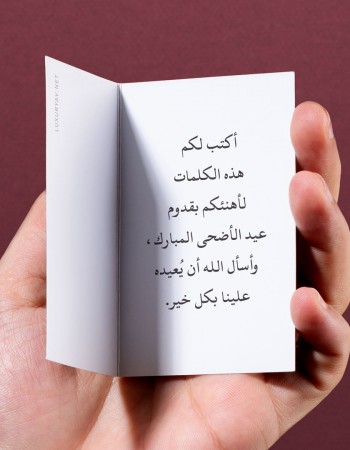 أكتب لكم
هذه الكلمات
لأهنئكم بقدوم
عيد الأضحى المبارك ،
وأسأل الله أن يُعيده
علينا بكل خير.
LUXURYBY.NET